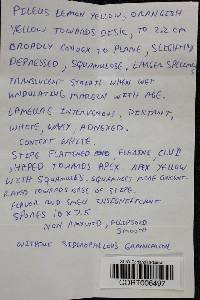 PILEUS LEMON YELLOW, ORANGISH
YELLOW TOWARDS DISK, TO 2.2 CM
BROADLY CONVEX TO PLANE, SLIGHTLY
DEPRESSED, SQUAMULOSE, LARGER SPECIMENS
TRANSLUCENT STRIATE WHEN WET
UNDULATING MARGIN WITH AGE.
LAMELLAE INTERVENOSE, DISTANT,
WHITE, WAXY, ADNEXED.
CONTEXT WHITE.
STIPE FLATTENED AND, FLARING, CLUB
SHAPED TOWARDS APEX APEX YELLOW
WITH SQUAMULES. SQUAMULES MORE CONCENT-
RATED TOWARDS BASE OF STIPE.
FLAVOR AND SMELL INSIGNIFICANT
SPORES 10 X 7.5
NON AMYLOID, ELLIPSOID
SMOOTH
WITHOUT SIDEROPHILOUS GRANULATION
CORT006497